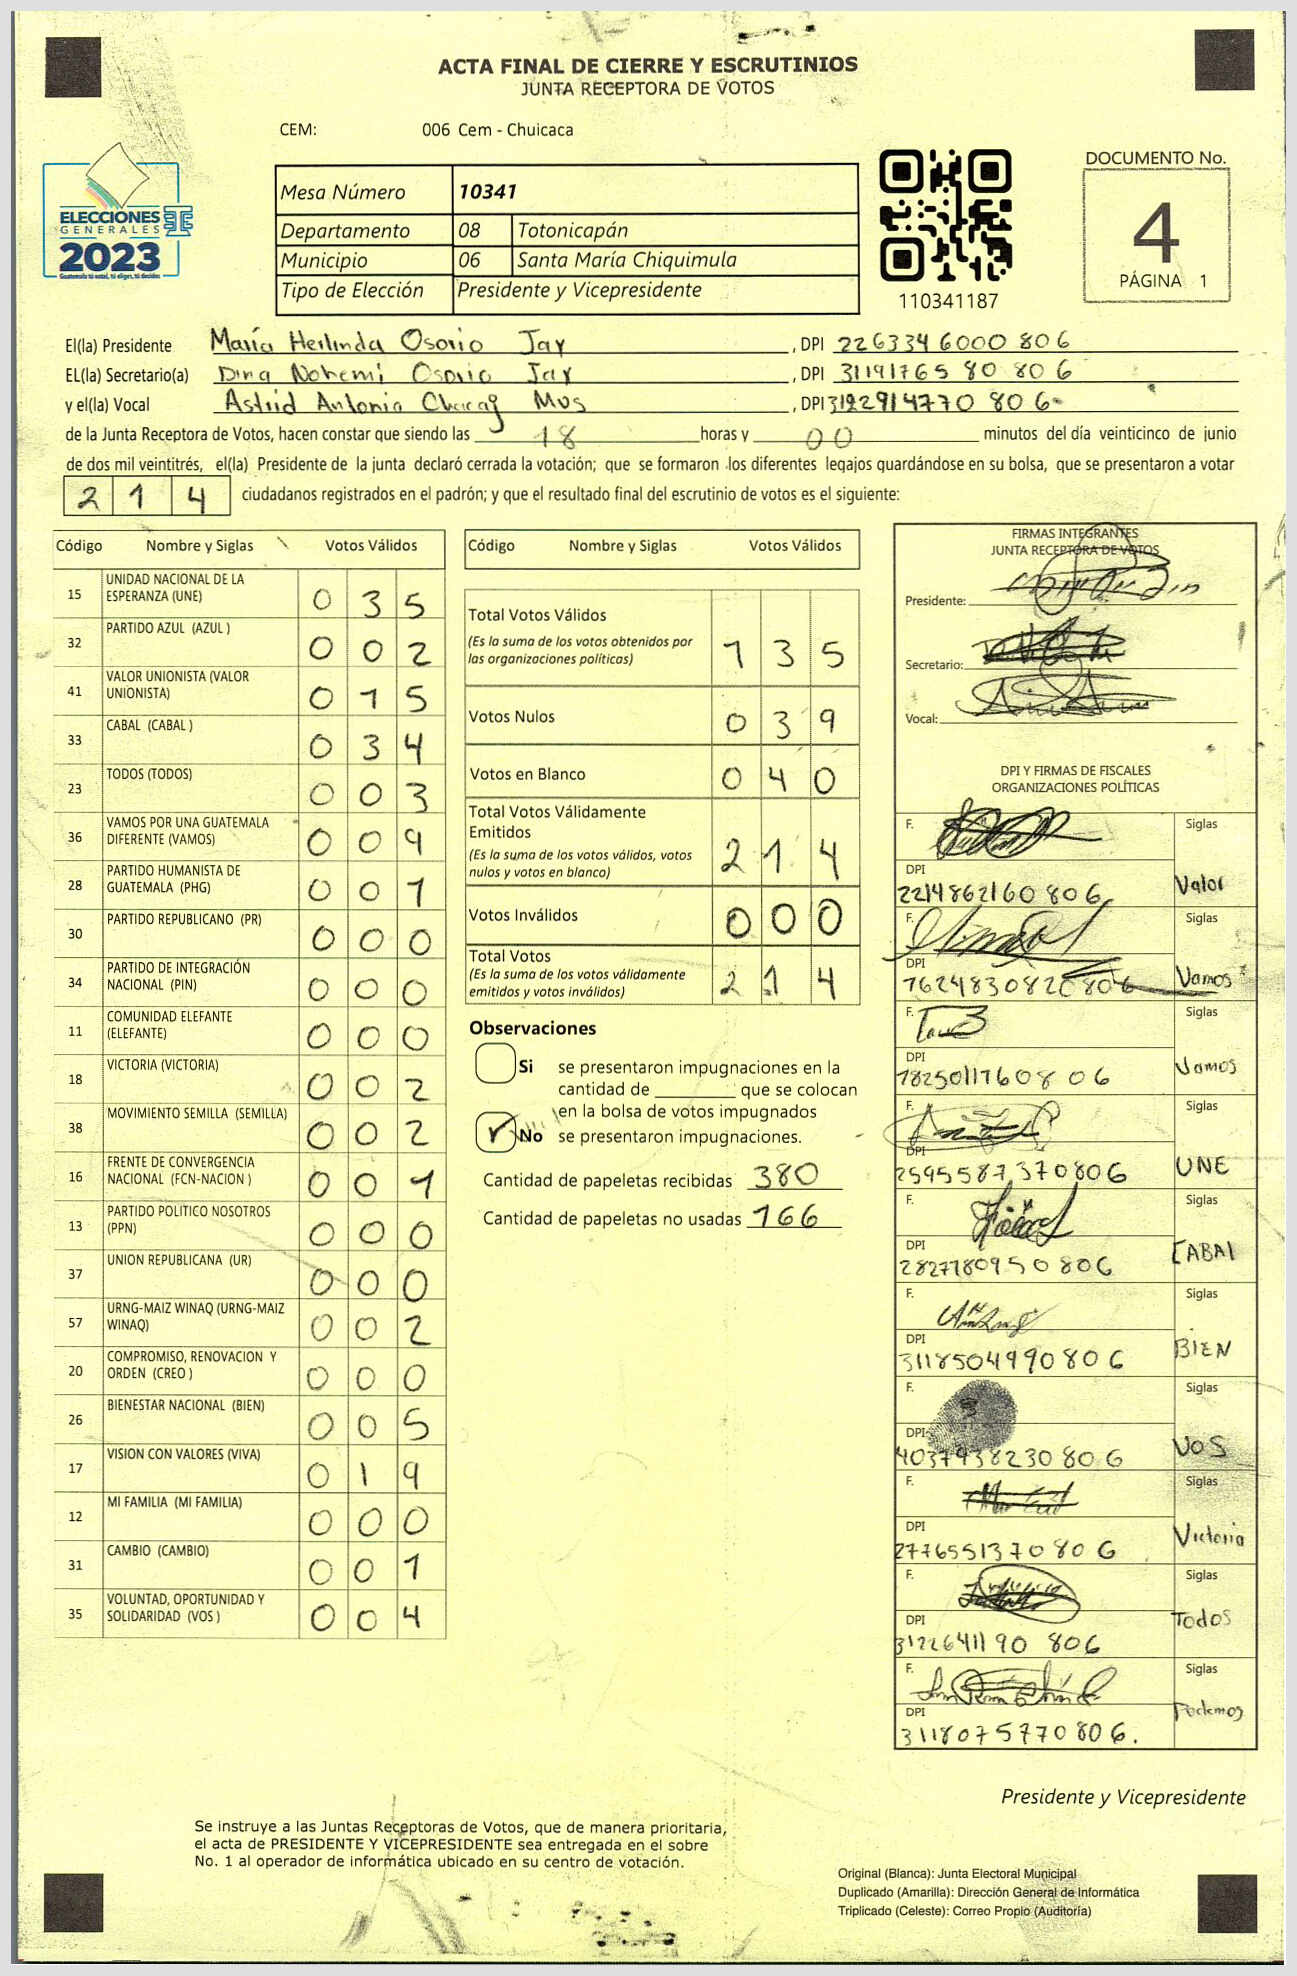 ACTA FINAL DE CIERRE Y ESCRUTINIOS
JUNTA RECEPTORA DE VOTOS
CEM: 006 Cem - Chuicaca
ELECCIONES
GENERALES
2023
Guatemala tú estás, tú eliges, tú decides
Mesa Número 10341
Departamento 08 Totonicapán
Municipio 06 Santa María Chiquimula
Tipo de Elección Presidente y Vicepresidente
110341187
DOCUMENTO No.
4
PÁGINA 1
El(la) Presidente María Herlinda Osorio Jax , DPI 2263346000806
EL(la) Secretario(a) Dina Nohemi Osorio Jax , DPI 3119176580806
y el(la) Vocal Astrid Antonia Chacaj Mus , DPI 3122914770806
de la Junta Receptora de Votos, hacen constar que siendo las 18 horas y 00 minutos del día veinticinco de junio
de dos mil veintitrés, el(la) Presidente de la junta declaró cerrada la votación; que se formaron los diferentes legajos quardándose en su bolsa, que se presentaron a votar
2 1 4 ciudadanos registrados en el padrón; y que el resultado final del escrutinio de votos es el siguiente:
Código Nombre y Siglas Votos Válidos
15 UNIDAD NACIONAL DE LA ESPERANZA (UNE) 0 3 5
32 PARTIDO AZUL (AZUL ) 0 0 2
41 VALOR UNIONISTA (VALOR UNIONISTA) 0 1 5
33 CABAL (CABAL ) 0 3 4
23 TODOS (TODOS) 0 0 3
36 VAMOS POR UNA GUATEMALA DIFERENTE (VAMOS) 0 0 9
28 PARTIDO HUMANISTA DE GUATEMALA (PHG) 0 0 1
30 PARTIDO REPUBLICANO (PR) 0 0 0
34 PARTIDO DE INTEGRACIÓN NACIONAL (PIN) 0 0 0
11 COMUNIDAD ELEFANTE (ELEFANTE) 0 0 0
18 VICTORIA (VICTORIA) 0 0 2
38 MOVIMIENTO SEMILLA (SEMILLA) 0 0 2
16 FRENTE DE CONVERGENCIA NACIONAL (FCN-NACION ) 0 0 1
13 PARTIDO POLITICO NOSOTROS (PPN) 0 0 0
37 UNION REPUBLICANA (UR) 0 0 0
57 URNG-MAIZ WINAQ (URNG-MAIZ WINAQ) 0 0 2
20 COMPROMISO, RENOVACION Y ORDEN (CREO ) 0 0 0
26 BIENESTAR NACIONAL (BIEN) 0 0 5
17 VISION CON VALORES (VIVA) 0 1 9
12 MI FAMILIA (MI FAMILIA) 0 0 0
31 CAMBIO (CAMBIO) 0 0 1
35 VOLUNTAD, OPORTUNIDAD Y SOLIDARIDAD (VOS ) 0 0 4
Código Nombre y Siglas Votos Válidos
Total Votos Válidos
(Es la suma de los votos obtenidos por
las organizaciones políticas) 1 3 5
Votos Nulos 0 3 9
Votos en Blanco 0 4 0
Total Votos Válidamente
Emitidos
(Es la suma de los votos válidos, votos
nulos y votos en blanco) 2 1 4
Votos Inválidos 0 0 0
Total Votos
(Es la suma de los votos válidamente
emitidos y votos inválidos) 2 1 4
Observaciones
Si se presentaron impugnaciones en la
cantidad de ________ que se colocan
en la bolsa de votos impugnados
No se presentaron impugnaciones.
Cantidad de papeletas recibidas 380
Cantidad de papeletas no usadas 166
FIRMAS INTEGRANTES
JUNTA RECEPTORA DE VOTOS
Presidente:
Secretario:
Vocal:
DPI Y FIRMAS DE FISCALES
ORGANIZACIONES POLÍTICAS
F. Siglas
DPI
2214862160806 Valor
F. Siglas
DPI
1624830820806 Vamos
F. Siglas
DPI
1825011760806 Vamos
F. Siglas
DPI
2595587370806 UNE
F. Siglas
DPI
2827780950806 CABAl
F. Siglas
DPI
3118504990806 BIEN
F. Siglas
DPI
4037938230806 VOS
F. Siglas
DPI
2776551370806 Victoria
F. Siglas
DPI
3122641190 806 Todos
F. Siglas
DPI
3118075770806. Podemos
Presidente y Vicepresidente
Se instruye a las Juntas Receptoras de Votos, que de manera prioritaria,
el acta de PRESIDENTE Y VICEPRESIDENTE sea entregada en el sobre
No. 1 al operador de informática ubicado en su centro de votación.
Original (Blanca): Junta Electoral Municipal
Duplicado (Amarilla): Dirección General de Informática
Triplicado (Celeste): Correo Propio (Auditoría)